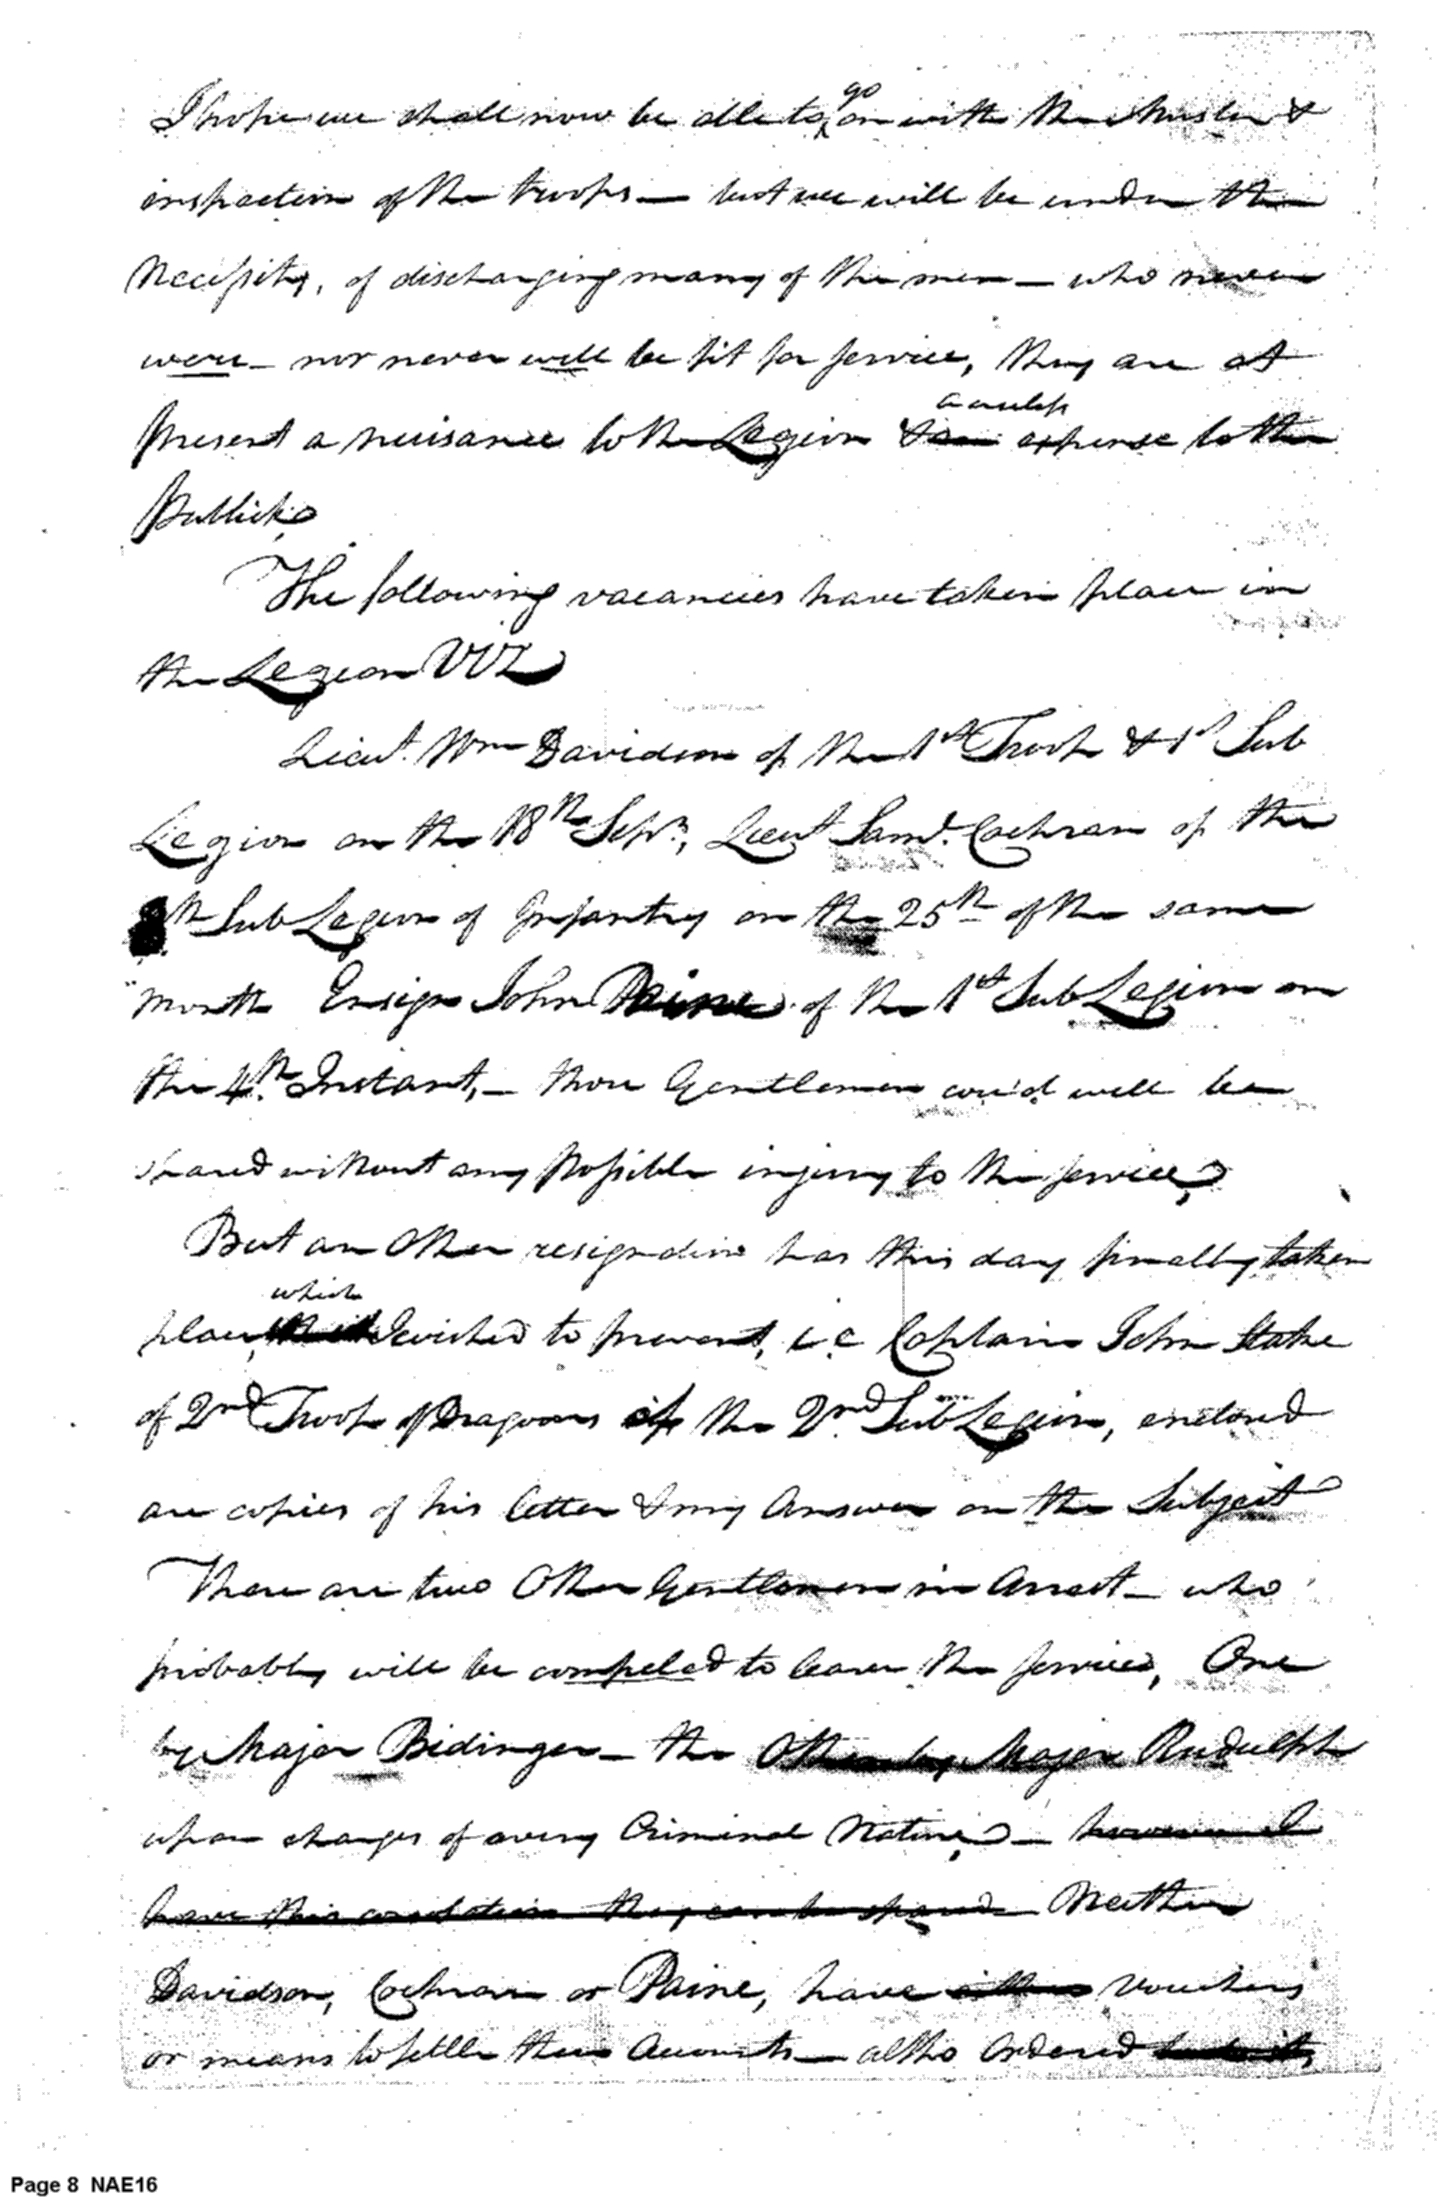 I hope we shall now be able to go on with the Muster &
inspection of the troops — but we will be under the
Necessity, of discharging many of the men — who never
were — nor never will be fit for service, they are at
present a nuisance to the Legion & a useless expense to the
Publick,
The following vacancies have taken place in
the Legion VIZ
Lieut. Wm Davidson of the 1st Troop & 1st Sub
Legion on the 18th Sepr, Lieut Saml. Cochran of the
th Sub Legion of Infantry on the 25th of the same
month Ensign John Paine of the 1st Sub Legion on
the 4th. Instant, — those Gentlemen cou'd well be
spared without any possible injury to the service,
But an Other resignation has this day finally taken
place, which I wished to prevent, i.e Captain John Stake
of 2nd Troop of Dragoons of the 2nd Sub Legion, enclosed
are copies of his letter & my Answer on the Subject
There are two Other Gentlemen in Arrest — who
probably will be compeled to leave the service, One
by Major Bedinger — the Other by Major Rudulph
upon charges of a very Criminal Nature, — however I
have this consolation they can be spared Neither
Davidson, Cochran or Paine, have Vouchers
or means to settle their Accounts — altho Ordered
Page 8 NAE16